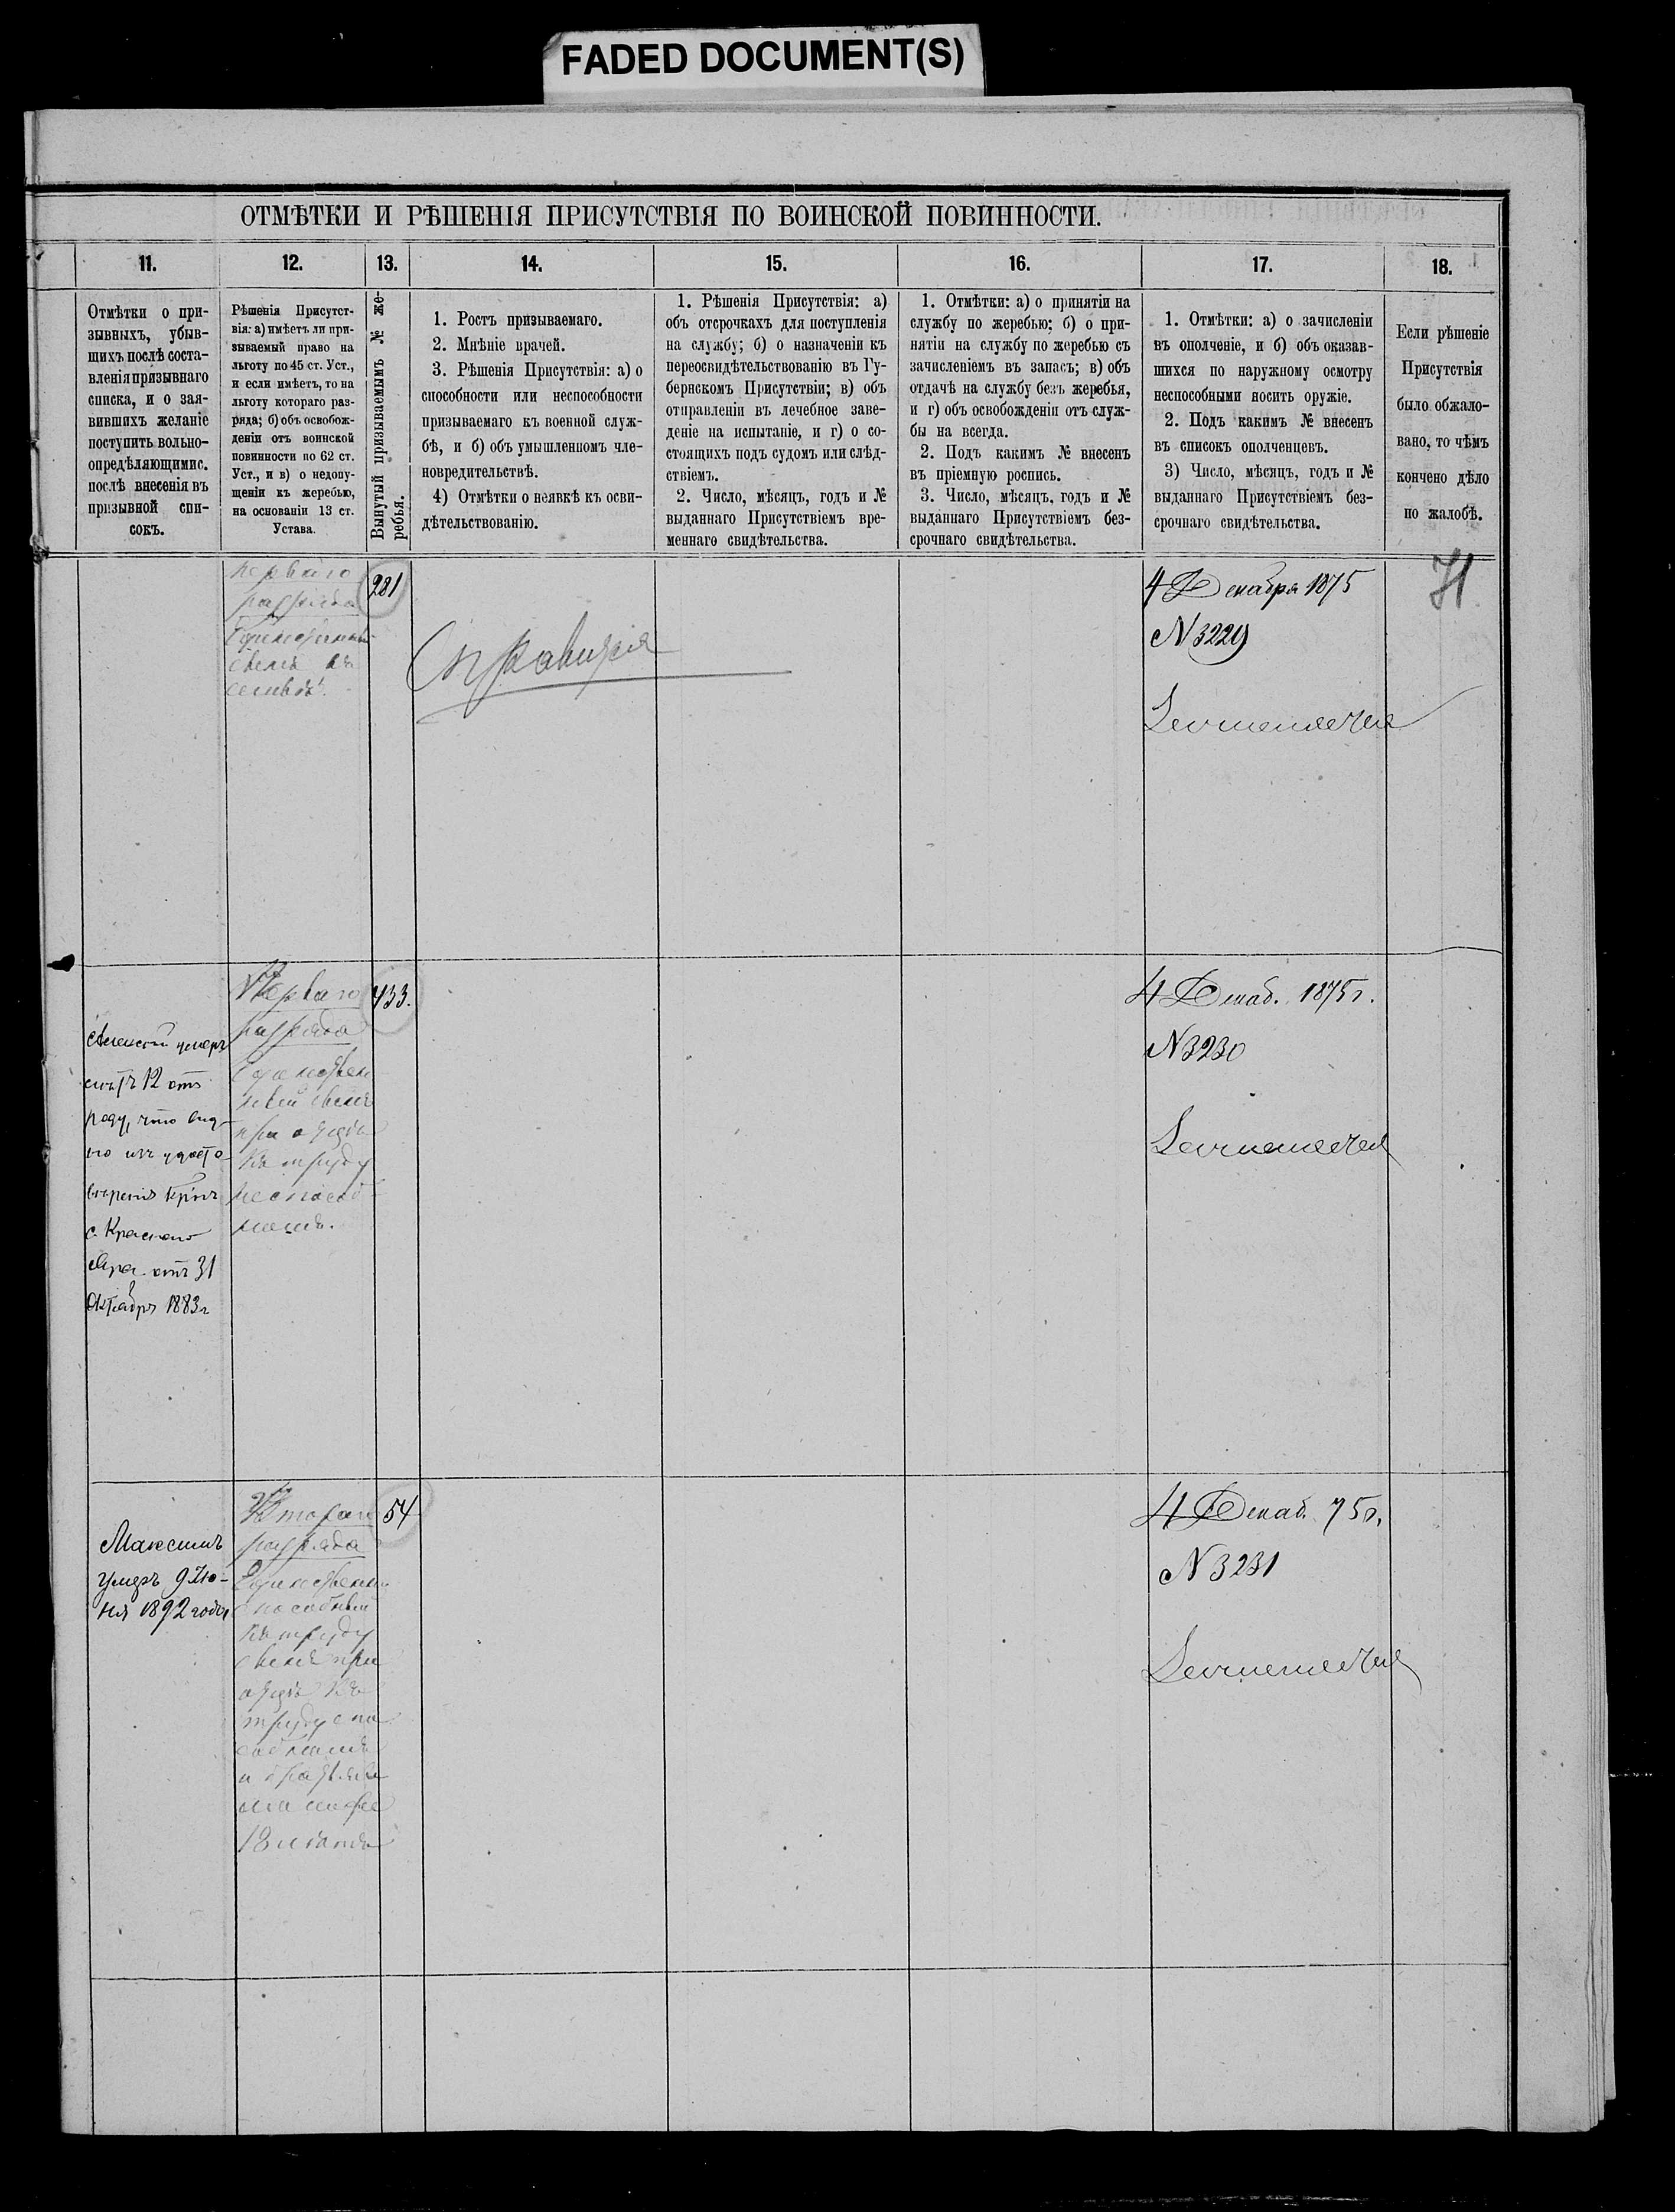 FADED DOCUMENT(S)
ОТМѢТКИ И РѢШЕНІЯ ПРИСУТСТВІЯ ПО ВОИНСКОЙ ПОВИННОСТИ.
11.
12.
13.
14.
15.
16.
17.
18.
Отмѣтки о при-
зывныхъ, убыв-
шихъ послѣ соста-
вленія призывнаго
списка, и о зая-
вившихъ желаніе
поступить вольно-
опредѣляющимис.
послѣ внесенія въ
призывной спи-
сокъ.
Рѣшенія Присутст-
вія: а) имѣетъ ли при-
зываемый право на
льготу по 45 ст. Уст.,
и если имѣетъ, то на
льготу котораго раз-
ряда; б) объ освобож-
деніи отъ воинской
повинности по 62 ст.
Уст., и в) о недопу-
щеніи къ жеребью,
на основаніи 13 ст.
Устава.
Вынутый призываемымъ № же-
ребья.
1. Ростъ призываемаго.
2. Мнѣніе врачей.
3. Рѣшенія Присутствія: а) о
способности или неспособности
призываемаго къ военной служ-
бѣ, и б) объ умышленномъ чле-
новредительствѣ.
4) Отмѣтки о неявкѣ къ осви-
дѣтельствованію.
1. Рѣшенія Присутствія: а)
объ отсрочкахъ для поступленія
на службу; б) о назначеніи къ
переосвидѣтельствованію въ Гу-
бернскомъ Присутствіи; в) объ
отправленіи въ лечебное заве-
деніе на испытаніе, и г) о со-
стоящихъ подъ судомъ или слѣд-
ствіемъ.
2. Число, мѣсяцъ, годъ и №
выданнаго Присутствіемъ вре-
меннаго свидѣтельства.
1. Отмѣтки: а) о принятіи на
службу по жеребью; б) о при-
нятіи на службу по жеребью съ
зачисленіемъ въ запасъ; в) объ
отдачѣ на службу безъ жеребья,
и г) объ освобожденіи отъ служ-
бы на всегда.
2. Подъ какимъ № внесенъ
въ пріемную роспись.
3. Число, мѣсяцъ, годъ и №
выданнаго Присутствіемъ без-
срочнаго свидѣтельства.
1. Отмѣтки: а) о зачисленіи
въ ополченіе, и б) объ оказав-
шихся по наружному осмотру
неспособными носить оружіе.
2. Подъ какимъ № внесенъ
въ списокъ ополченцевъ.
3) Число, мѣсяцъ, годъ и №
выданнаго Присутствіемъ без-
срочнаго свидѣтельства.
Если рѣшеніе
Присутствія
было обжало-
вано, то чѣмъ
кончено дѣло
по жалобѣ.
перваго
разряда
Единственный
сынъ въ
семьѣ.
281
4 Декабря 1875
N 3229
71
Алексѣй умеръ
12 отъ
роду, что вид-
но изъ удосто-
вѣренія
с. Краснаго
Яра отъ 31
Октября 1883 г
Перваго
разряда
Единствен
ный сынъ
при отцѣ
къ труду
неспособ
номъ.
433.
4 Декаб. 1875 г.
N 3230
Максимъ
умеръ 9 Ію-
ня 1892 года
Втораго
разряда
Единственный
способный
къ труду
сынъ при
отцѣ къ
труду спо
собномъ
и братьяхъ
моложе
18 лѣтъ
54
4 Декаб. 75 г.
N 3231